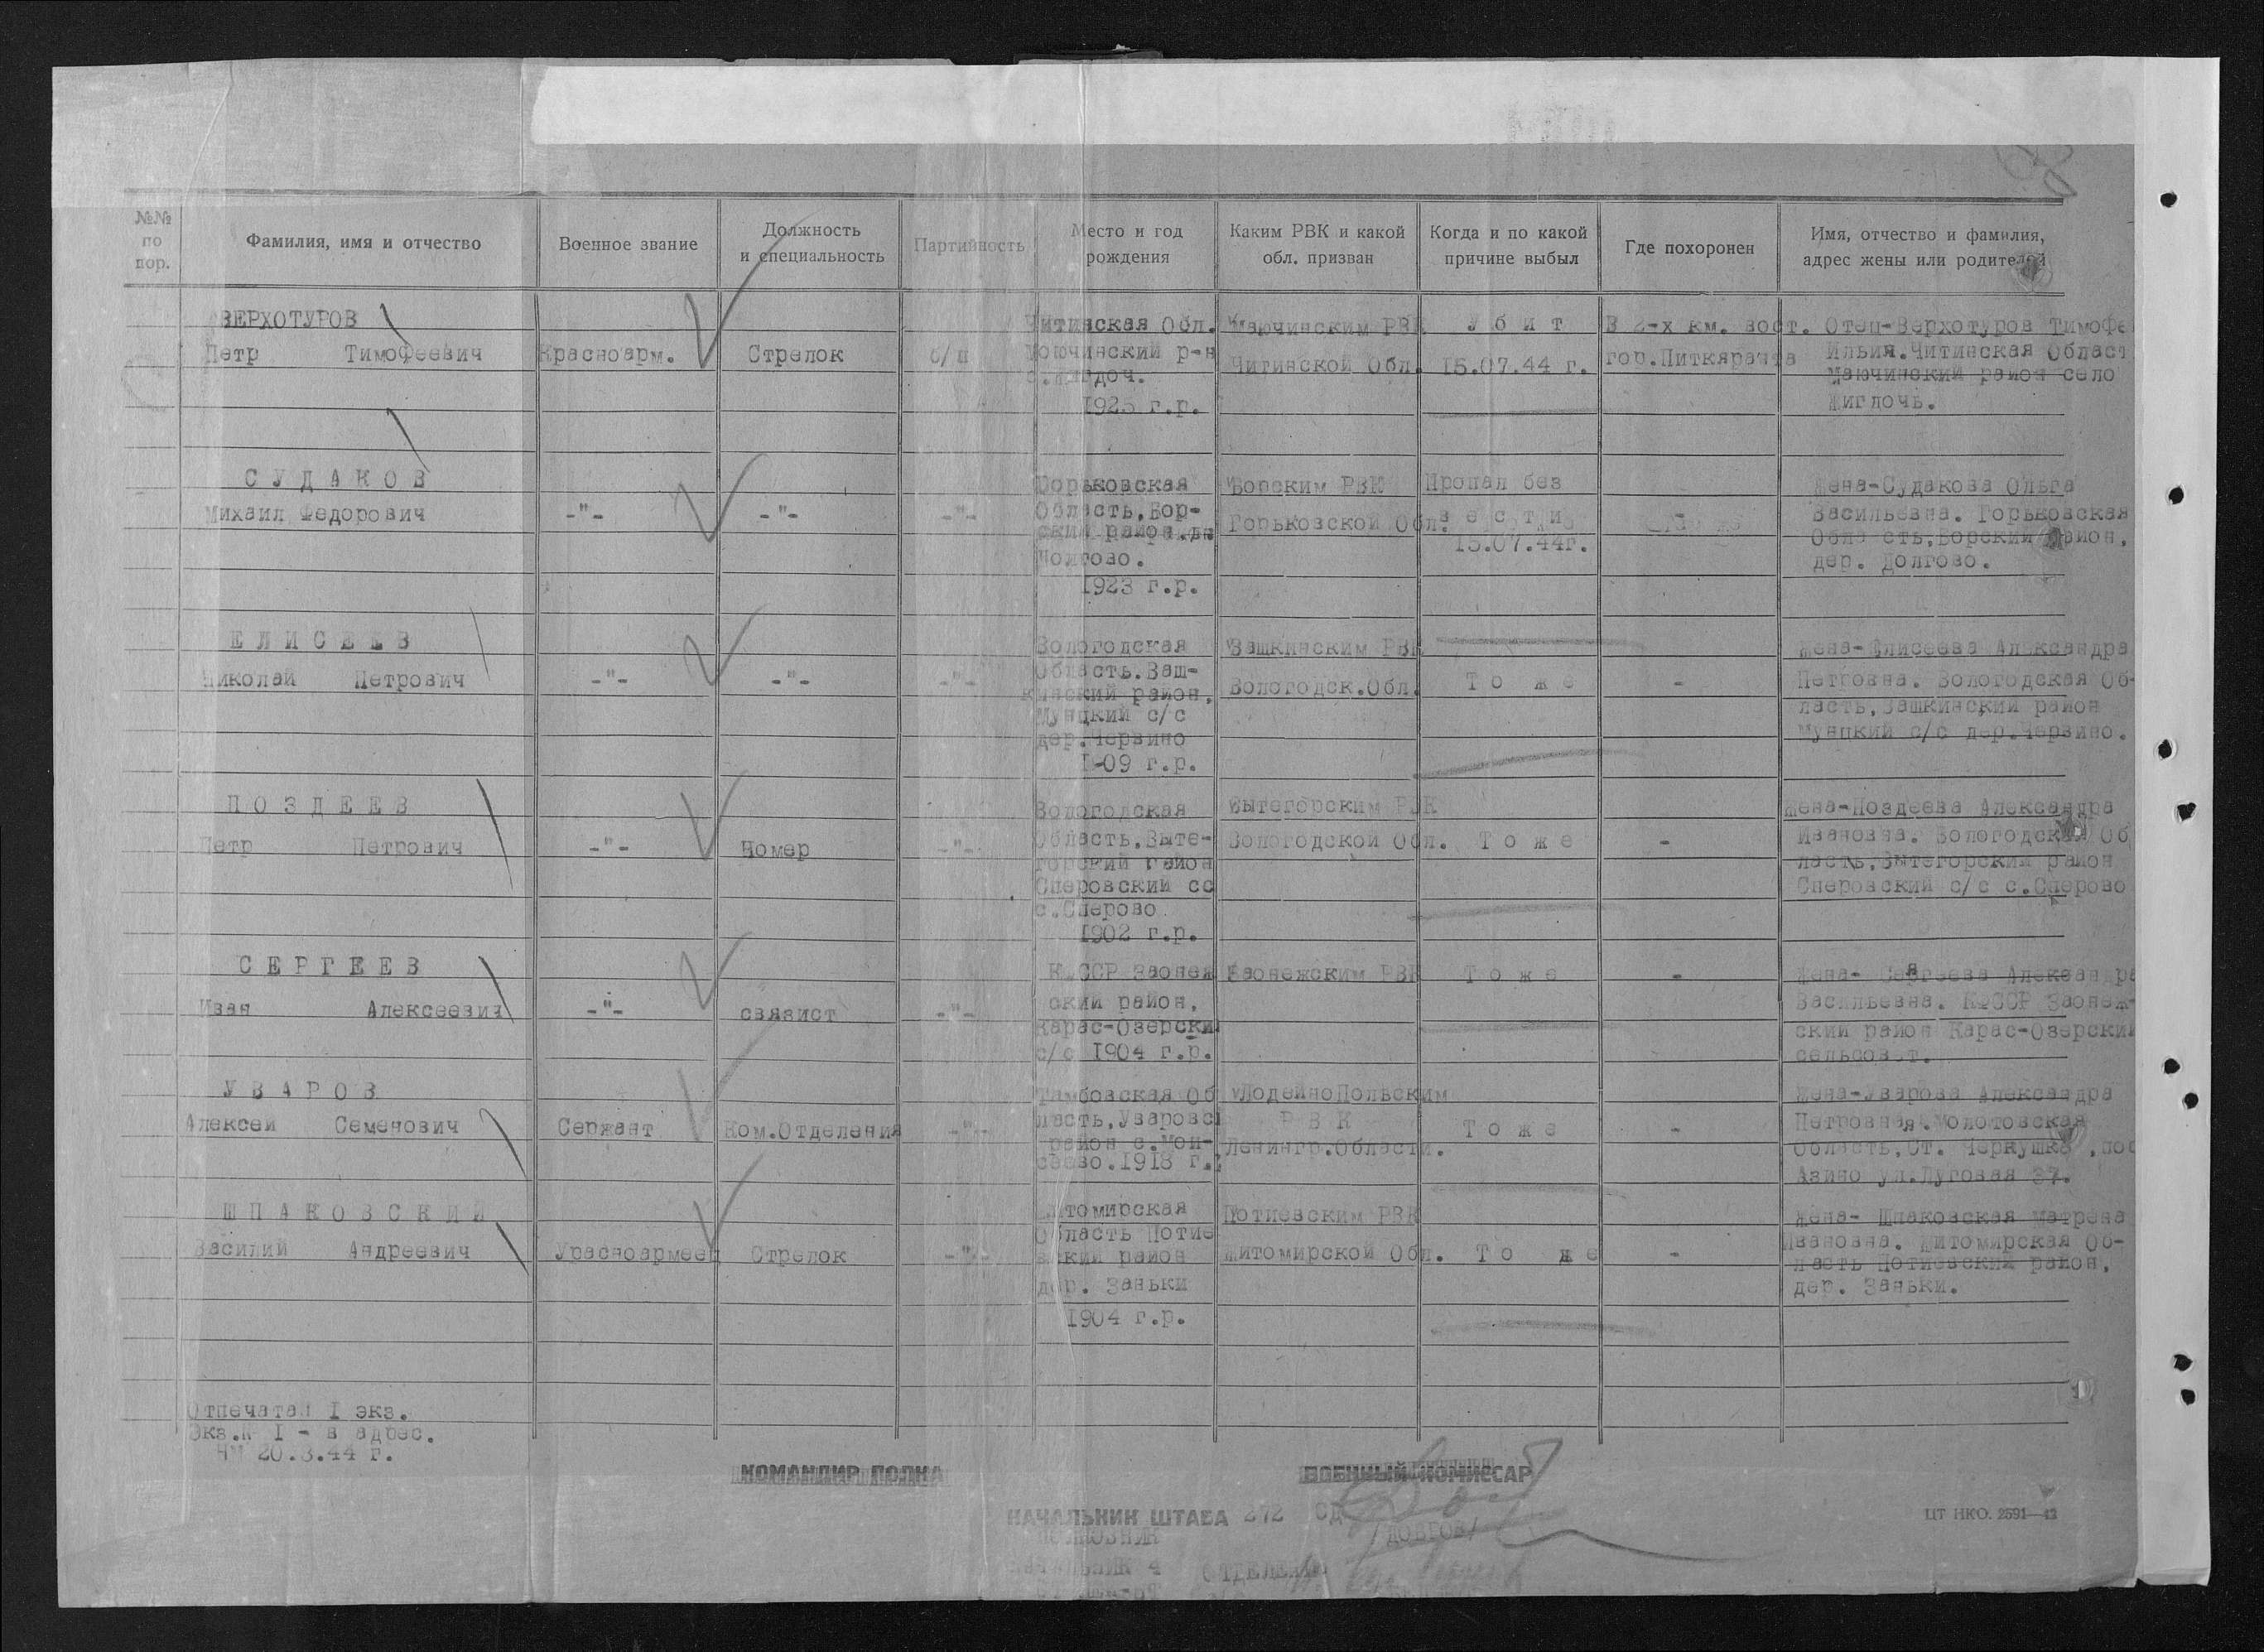 №№ по пор.
Фамилия, имя и отчество
Военное звание
Должность и специальность
Партийность
Место и год рождения
Каким РВК и какой обл. призван
Когда и по какой причине выбыл
Где похоронен
Имя, отчество и фамилия, адрес жены или родителей
ВЕРХОТУРОВ
Петр Тимофеевич
Красноарм.
Стрелок
б/п
Читинская Обл.
р-н
1923 г.р.
РВК
Читинской Обл.
Убит
15.07.44 г.
В 2-х км. вост.
гор.Питкяранта
Отец-Верхотуров Тимофе
Ильич.Читинская Област
район село
СУДАКОВ
Михаил Федорович
-"-
-"-
-"-
Горьковская
Область,Бор-
ский район,
Долгово.
1923 г.р.
Борским РВК
Горьковской Обл.
Пропал без
вести
15.07.44г.
Жена-Судакова Ольга
Васильевна. Горьковская
Область,Борский район,
дер. Долгово.
ЕЛИСЕЕВ
Николай Петрович
-"-
-"-
-"-
Вологодская
Область.Ваш-
кинский район,
Мунцкий с/с
дер.Червино
1909 г.р.
Вашкинским РВК
Вологодск.Обл.
То же
-
Жена-Елисеева Александра
Петровна. Вологодская Об-
ласть,Вашкинский район
Мунцкий с/с дер.Червино.
ПОЗДЕЕВ
Петр Петрович
-"-
Номер
-"-
Вологодская
Область,Выте-
горский район
Сперовский сс
с.Сперово
1902 г.р.
Вытегорским РВК
Вологодской Обл.
Тоже
-
Жена-Поздеева Александра
Ивановна. Вологодская Об
ласть,Вытегорский район
Сперовский с/с с.Сперово
СЕРГЕЕВ
Иван Алексеевич
-"-
связист
-"-
КФССР Заонеж
ский район,
Карас-Озерски
с/с 1904 г.р.
Заонежским РВК
Тоже
-
Жена- Сергеева Александра
Васильевна. КФССР Заонеж-
ский район Карас-Озерский
сельсовет.
УВАРОВ
Алексей Семенович
Сержант
Ком.Отделения
-"-
Тамбовская Об
ласть,Уваровс
район
1918 г.
ЛодейноПольским
РВК
Ленингр.Области.
Тоже
-
Жена-Уварова Александра
Петровна. Молотовская
Область,Ст. Чернушка ,пос
Азино ул.Луговая 37.
ШПАКОВСКИЙ
Василий Андреевич
Красноармеец
Стрелок
-"-
Житомирская
Область Потие
вский район
дер. Заньки
1904 г.р.
Потиевским РВК
Житомирской Обл.
То же
-
Жена- Шпаковская Матрена
Ивановна. Житомирская Об-
ласть Потиевский район,
дер. Заньки.
Отпечатан 1 экз.
Экз.№ 1 - в адрес.
44 г.
КОМАНДИР ПОЛКА
ВОЕННЫЙ КОМИССАР
НАЧАЛЬНИК ШТАБА 272 СД
НАЧАЛЬНИК 4 ОТДЕЛЕНИЯ
ЦТ НКО. 2591—42